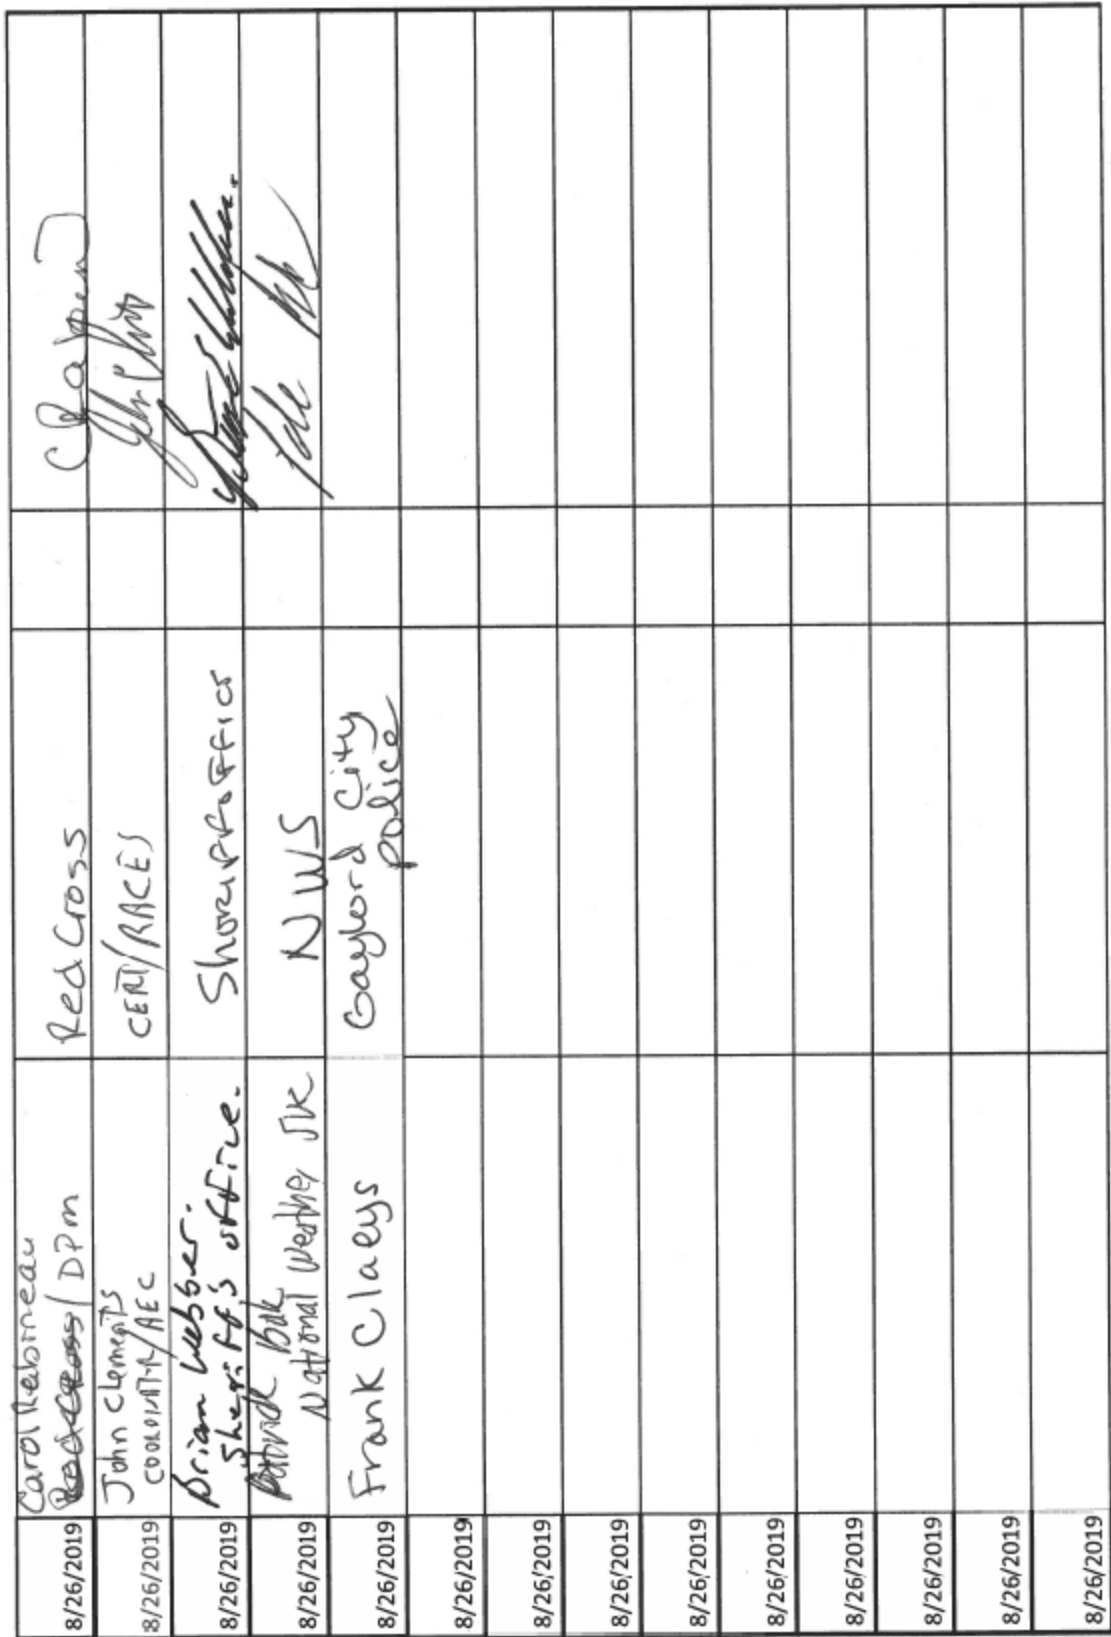 8/26/2019
Carol Rabineau
Red Cross / DPM
Red Cross
8/26/2019
John Clements
COORDINATOR/AEC
CERT/RACES
8/26/2019
Brian Webber.
Sheriff's office.
Sheriff Office
8/26/2019
Patrick Bak
National Weather
NWS
8/26/2019
Frank Claeys
Gaylord City
police
8/26/2019
8/26/2019
8/26/2019
8/26/2019
8/26/2019
8/26/2019
8/26/2019
8/26/2019
8/26/2019